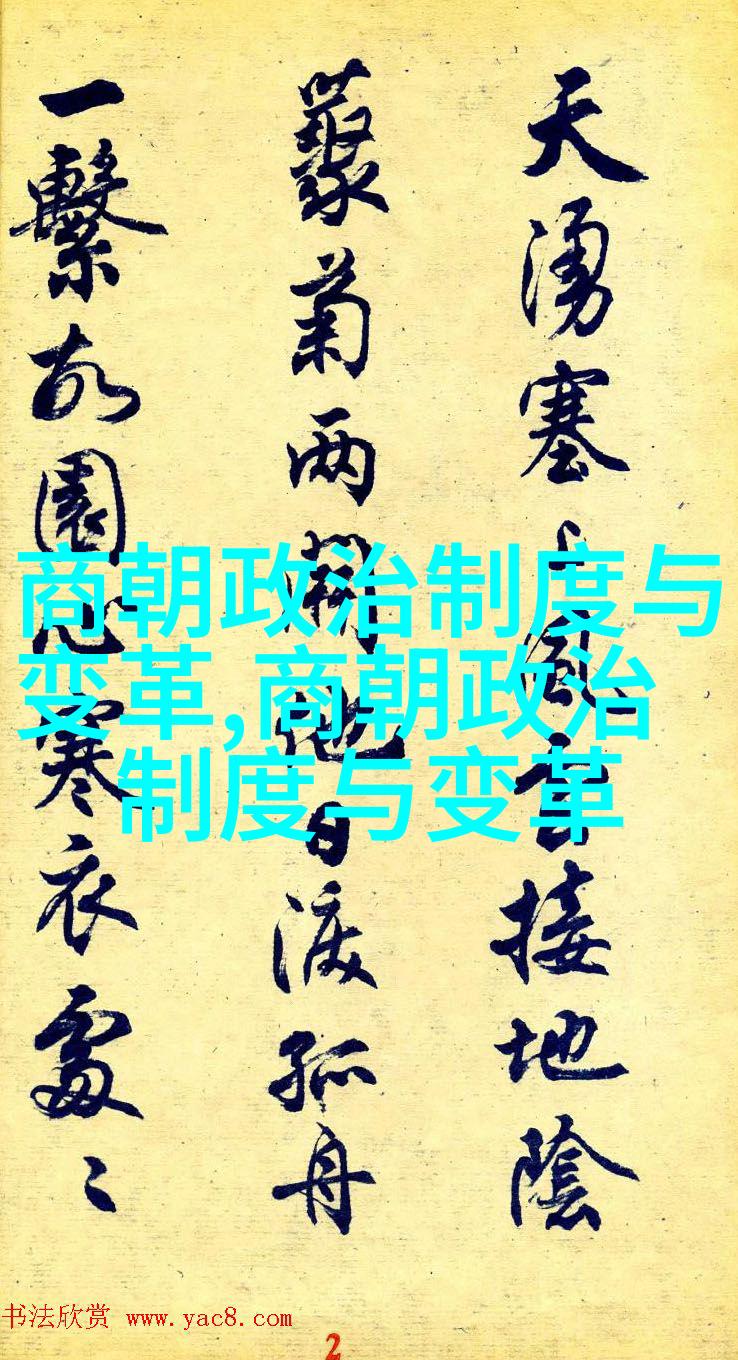 天湧塞上風雲接地陰
藂菊两開他日淚孤舟
一繫故園心寒衣處〻
商朝政治制度与
变革,商朝政治
制度与变革
书法欣赏 www.yac8.com
2